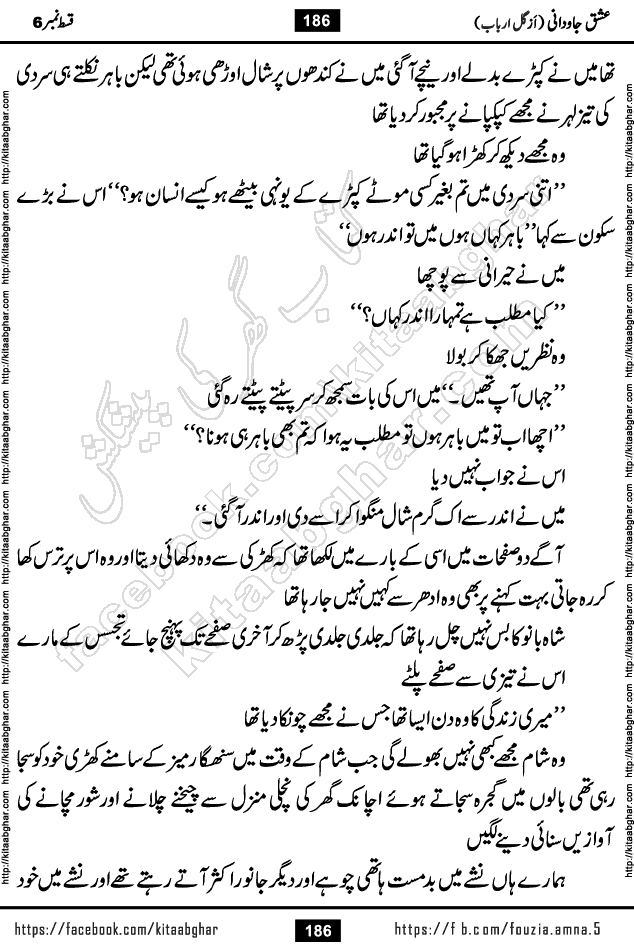 عشق جاودانی (از گل ارباب) 186 قسط نمبر 6
تھا میں نے کپڑے بدلے اور نیچے آ گئی میں نے کندھوں پر شال اوڑھی ہوئی تھی لیکن باہر نکلتے ہی سردی
کی تیز لہر نے مجھے کپکپانے پر مجبور کر دیا تھا
وہ مجھے دیکھ کر کھڑا ہو گیا تھا
’’اتنی سردی میں تم بغیر کسی موٹے کپڑے کے یونہی بیٹھے ہو کیسے انسان ہو؟‘‘ اس نے بڑے
سکون سے کہا ’’باہر کہاں ہوں میں تو اندر ہوں‘‘
میں نے حیرانی سے پوچھا
’’کیا مطلب ہے تمہارا اندر کہاں؟‘‘
وہ نظریں جھکا کر بولا
’’جہاں آپ تھیں۔‘‘ میں اس کی بات سمجھ کر سر پیٹتے پیٹتے رہ گئی
’’اچھا اب تو میں باہر ہوں تو مطلب یہ ہوا کہ تم بھی باہر ہی ہو نا؟‘‘
اس نے جواب نہیں دیا
میں نے اندر سے اک گرم شال منگوا کر اسے دی اور اندر آ گئی۔‘‘
آگے دو صفحات میں اسی کے بارے میں لکھا تھا کہ کھڑکی سے وہ دکھائی دیتا اور وہ اس پر ترس کھا
کر رہ جاتی بہت کہنے پر بھی وہ ادھر سے کہیں نہیں جا رہا تھا
شاہ بانو کا بس نہیں چل رہا تھا کہ جلدی جلدی پڑھ کر آخری صفحے تک پہنچ جائے تجسس کے مارے
اس نے تیزی سے صفحے پلٹے
’’میری زندگی کا وہ دن ایسا تھا جس نے مجھے چونکا دیا تھا
وہ شام مجھے کبھی نہیں بھولے گی جب شام کے وقت میں سنھگار میز کے سامنے کھڑی خود کو سجا
رہی تھی بالوں میں گجرہ سجاتے ہوئے اچانک گھر کی نچلی منزل سے چیخنے چلانے اور شور مچانے کی
آوازیں سنائی دینے لگیں
ہمارے ہاں نشے میں بدمست ہاتھی چوہے اور دیگر جانور اکثر آتے رہتے تھے اور نشے میں خود
کتاب گھر کی پیشکش
kitaabghar.com
facebook.com/kitaabghar
http://kitaabghar.com http://kitaabghar.com http://kitaabghar.com http://kitaabghar.com http://kitaabghar.com http://kitaabghar.com http://kitaabghar.com http://kitaabghar.com
http://kitaabghar.com http://kitaabghar.com http://kitaabghar.com http://kitaabghar.com http://kitaabghar.com http://kitaabghar.com http://kitaabghar.com http://kitaabghar.com
https://facebook.com/kitaabghar 186 https://fb.com/fouzia.amna.5